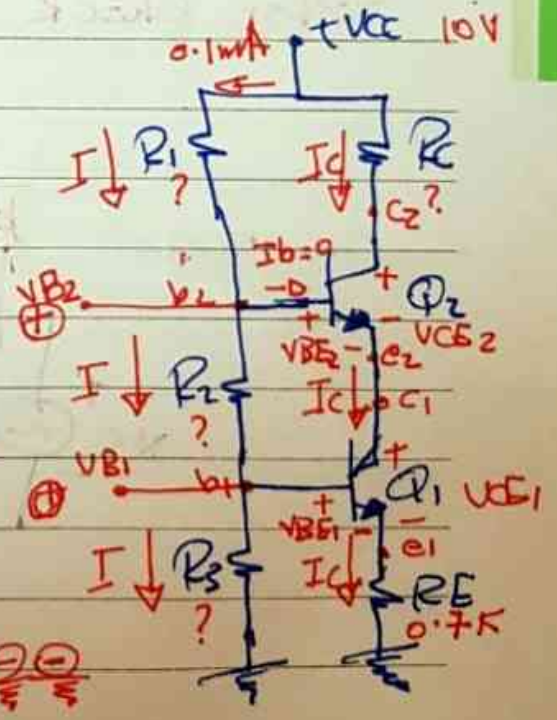 +VCC 10V
0.1mA
I R1 ? IC RC ?
C2
Ib=0
VB2 b2 + Q2
+ VBE2 - - VCE2
e2
I R2 ? IC C1
VB1 b1 + Q1 VCE1
+ VBE1 - -
e1
I R3 ? IC RE
0.7K